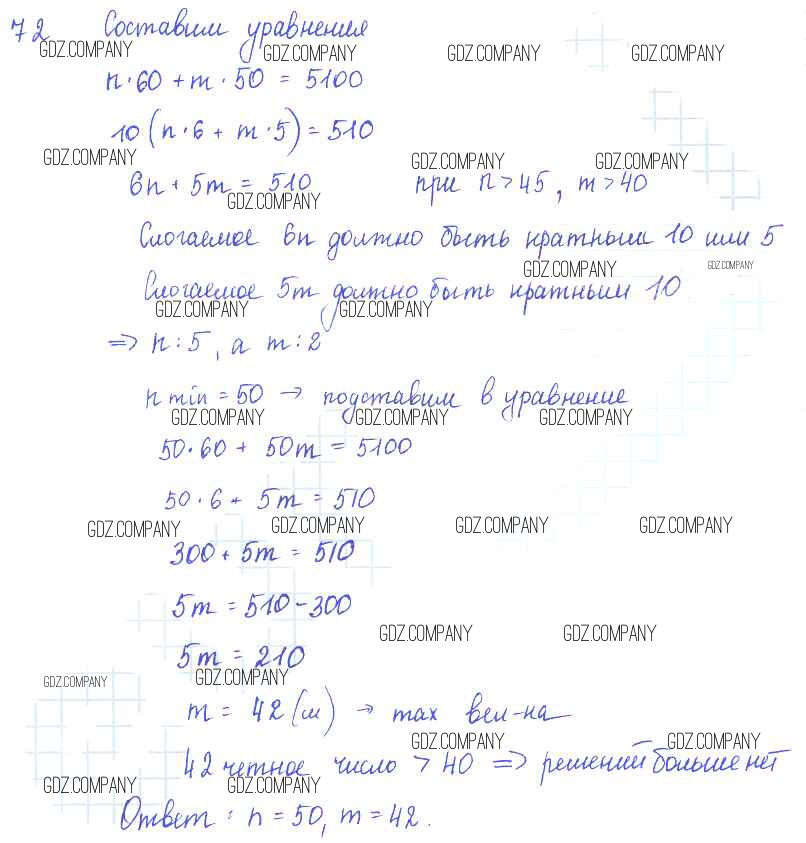 72 Составим уравнения
GDZ.COMPANY GDZ.COMPANY GDZ.COMPANY GDZ.COMPANY
n·60 + m·50 = 5100
10(n·6 + m·5) = 510
GDZ.COMPANY GDZ.COMPANY GDZ.COMPANY
6n + 5m = 510 при n > 45, m > 40
GDZ.COMPANY
Слогаемое 6n должно быть кратным 10 или 5
GDZ.COMPANY GDZ.COMPANY
Слогаемое 5m должно быть кратным 10
GDZ.COMPANY GDZ.COMPANY
=> n : 5, а m : 2
n min = 50 → подставим в уравнение
GDZ.COMPANY GDZ.COMPANY GDZ.COMPANY
50·60 + 50m = 5100
50·6 + 5m = 510
GDZ.COMPANY GDZ.COMPANY GDZ.COMPANY GDZ.COMPANY
300 + 5m = 510
5m = 510 - 300
GDZ.COMPANY GDZ.COMPANY
5m = 210
GDZ.COMPANY GDZ.COMPANY
m = 42 (м) → max вел-на
GDZ.COMPANY GDZ.COMPANY
42 четное число > 40 => решений больше нет
GDZ.COMPANY GDZ.COMPANY
Ответ: n = 50, m = 42.